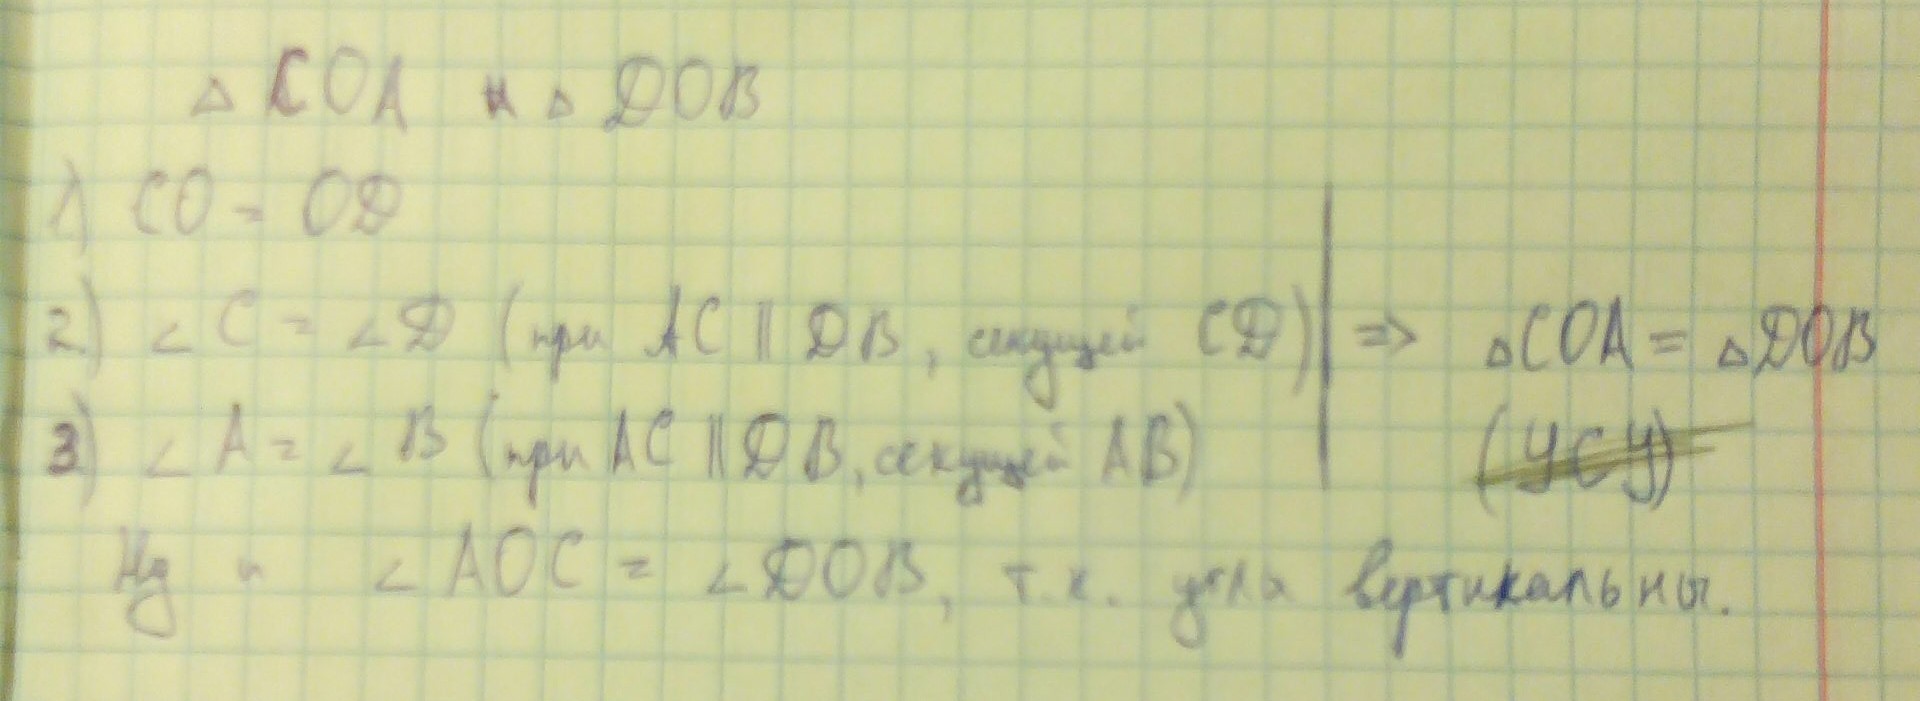 △ COA и △ DOB
1) CO = OD
2) ∠ C = ∠ D (при AC || DB, секущей CD) => △COA = △DOB
3) ∠ A = ∠ B (при AC || DB, секущей AB) (УСУ)
Ну и ∠ AOC = ∠ DOB, т.к. углы вертикальны.